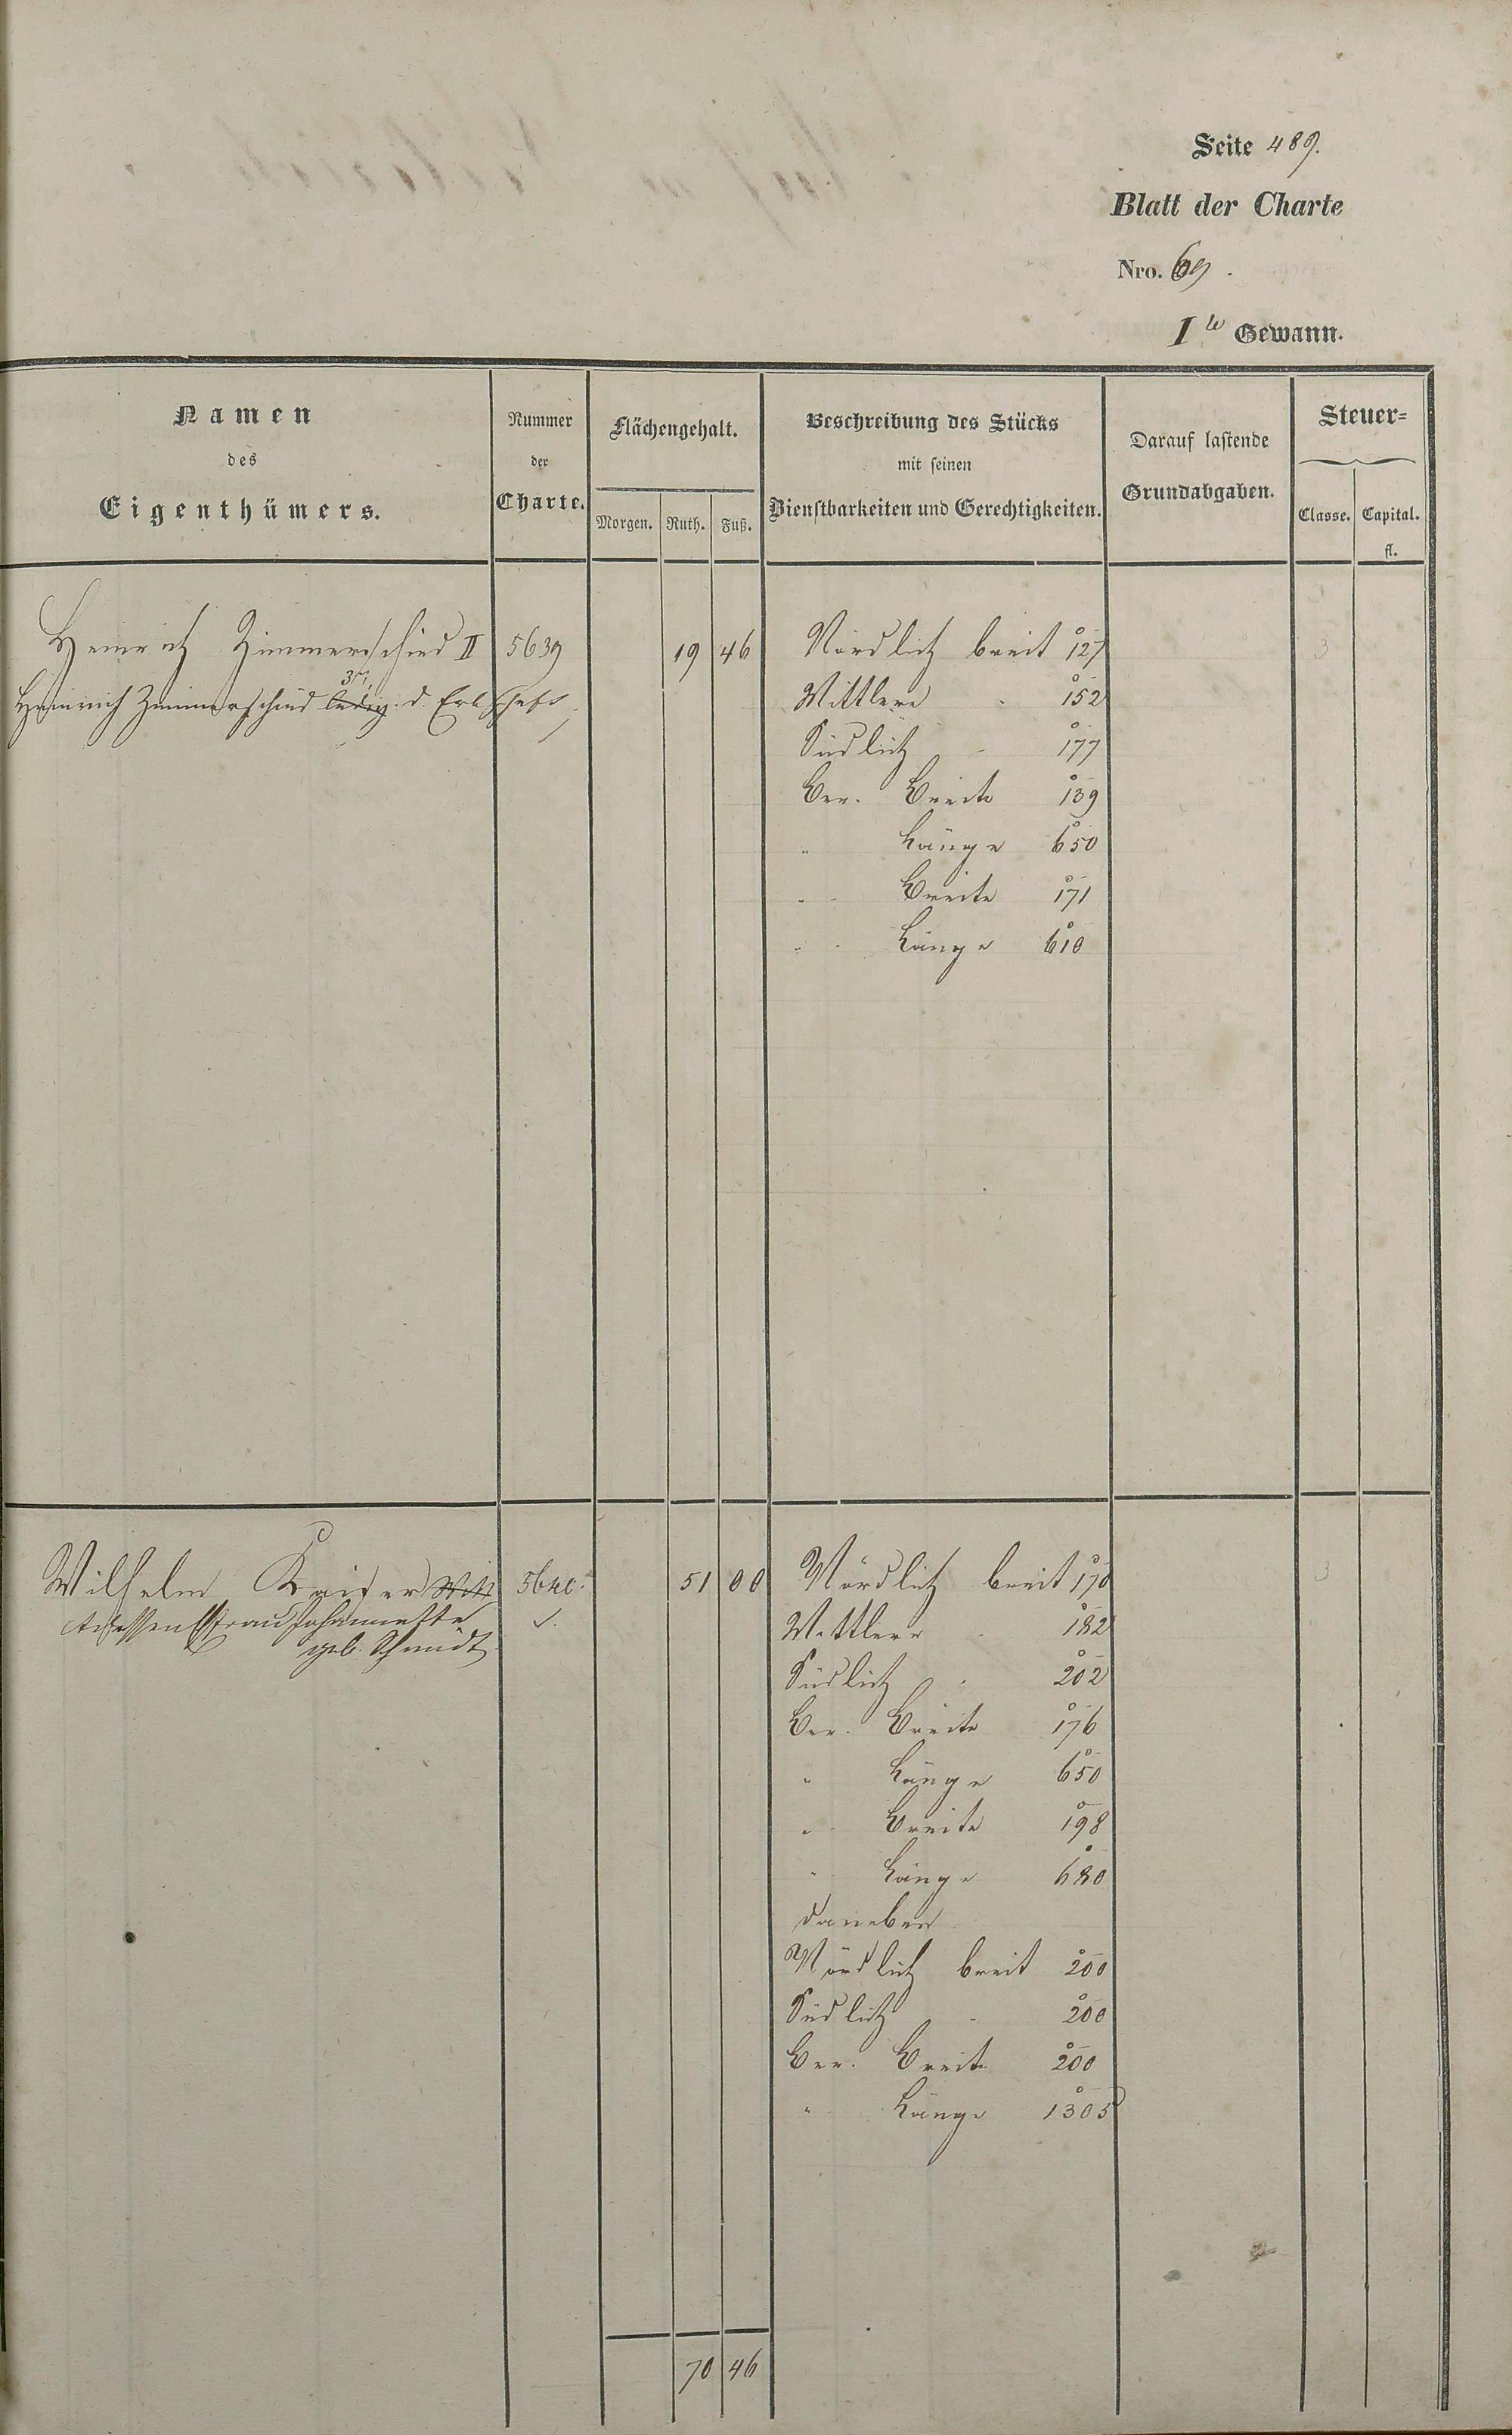 Seite 489.
Blatt der Charte
Nro. 69.
I te Gewann.
Namen
des
Eigenthümers.
Nummer
der
Charte.
Flächengehalt.
Morgen. Ruth. Fuß.
Beschreibung des Stücks
mit seinen
Dienstbarkeiten und Gerechtigkeiten.
Darauf lastende
Grundabgaben.
Steuer-
Classe. Capital.
fl.
Heinrich Zimmerschied II 5639 19 46 Nördlich breit 127 3
3r
Heinrich Zimmerschied ledig. d. Erbschaft
Mittlere " 152
Südlich " 177
Ber. Breite 139
" Länge 650
" Breite 171
" Länge 610
Wilhelm Kaiser Wtt 5640. 51 00 Nördlich breit 170 3
dessen Frau Johannette
geb. Schmidt
Mittlere " 182
Südlich " 202
Ber. Breite 176
" Länge 650
" Breite 198
" Länge 680
daneben
Nördlich breit 200
Südlich " 200
Ber. Breite 200
" Länge 1305
70 46